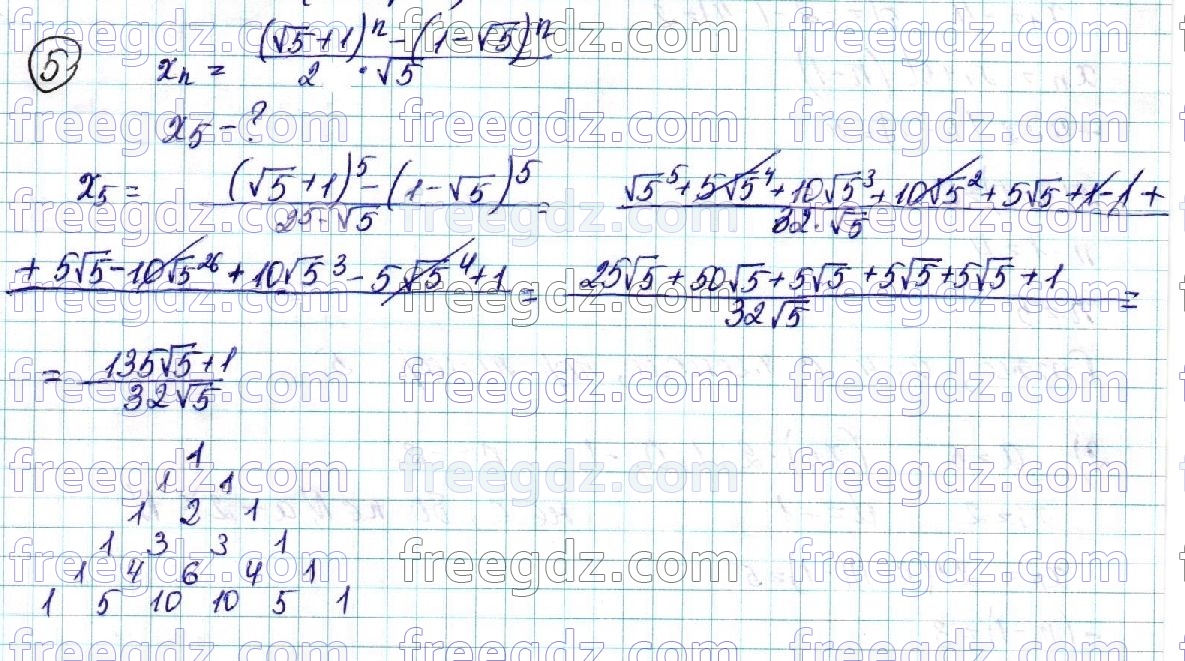 5
xₙ = ((√5+1)ⁿ - (1-√5)ⁿ) / (2 · √5)
x₅ - ?
x₅ = ((√5+1)⁵ - (1-√5)⁵) / (2⁵·√5) = (√5⁵ + 5√5⁴ + 10√5³ + 10√5² + 5√5 + 1 - 1 +
+ 5√5 - 10√5²⁶ + 10√5³ - 5√5⁴ + 1) / (32·√5) = (25√5 + 50√5 + 5√5 + 5√5 + 5√5 + 1) / (32√5) =
= (135√5+1) / (32√5)
1
1 1
1 2 1
1 3 3 1
1 4 6 4 1
1 5 10 10 5 1
freegdz.com